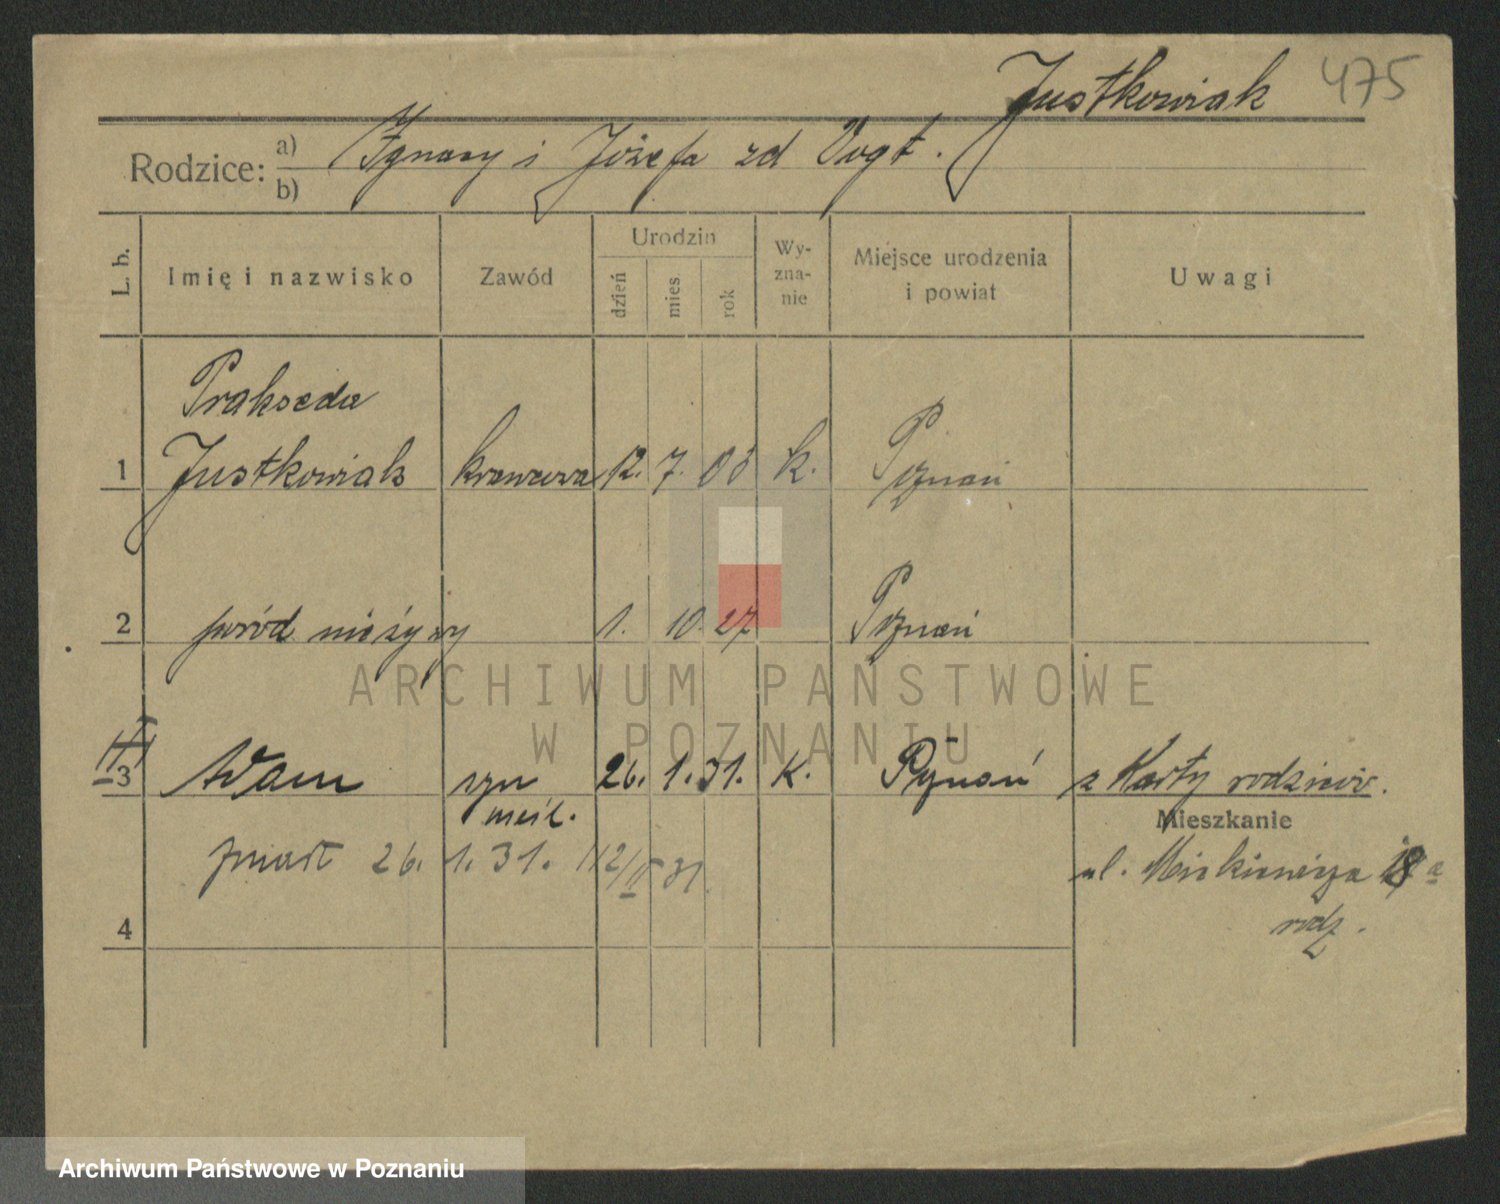 Justkowiak 475
Rodzice: a) Ignacy i Józefa zd Vogt.
b)
L. b. Imię i nazwisko Zawód Urodzin dzień mies. rok Wy-zna-nie Miejsce urodzenia i powiat Uwagi
Prakseda
1 Justkowiak krawcowa 12. 7. 03 k. Poznań
2 poród nieżywy 1. 10. 27 Poznań
ARCHIWUM PAŃSTWOWE
W POZNANIU
3 Adam syn 26. 1. 31. K. Poznań z Karty rodziców.
nieśl. Mieszkanie
zmarł 26. 1. 31. 112/II 31. ul. Mickiewicza 18 a
4 rodz.
Archiwum Państwowe w Poznaniu